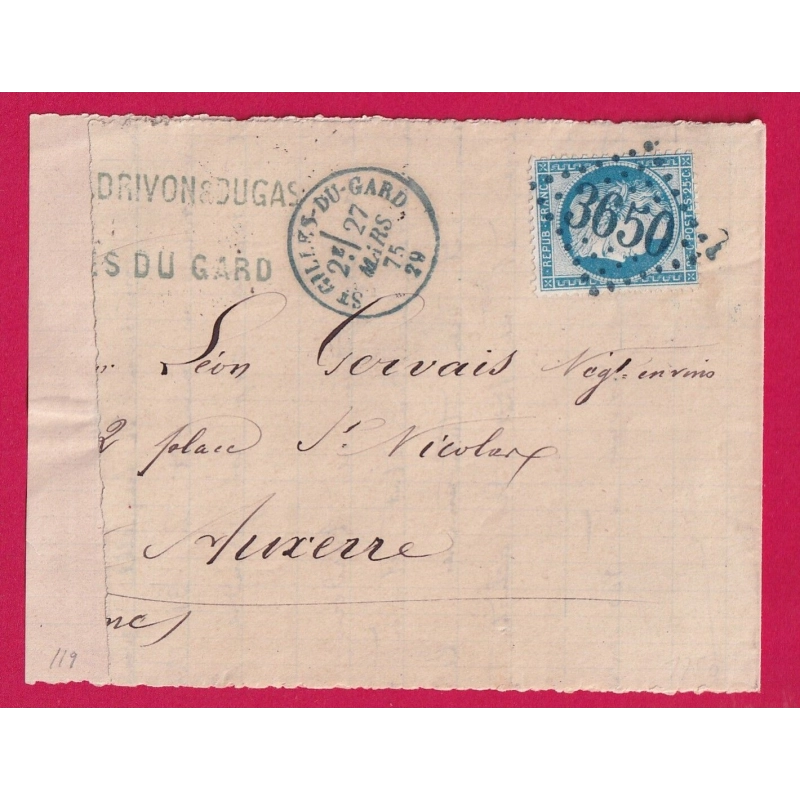 DRIVON & DUGAS
ES DU GARD
ST GILLES-DU-GARD
2E 27
MARS
75
29
REPUB. FRANC.
POSTES 25 C.
3650
Léon Gervais Negt. en vins
2 place St. Nicolas
Auxerre
nne)
119